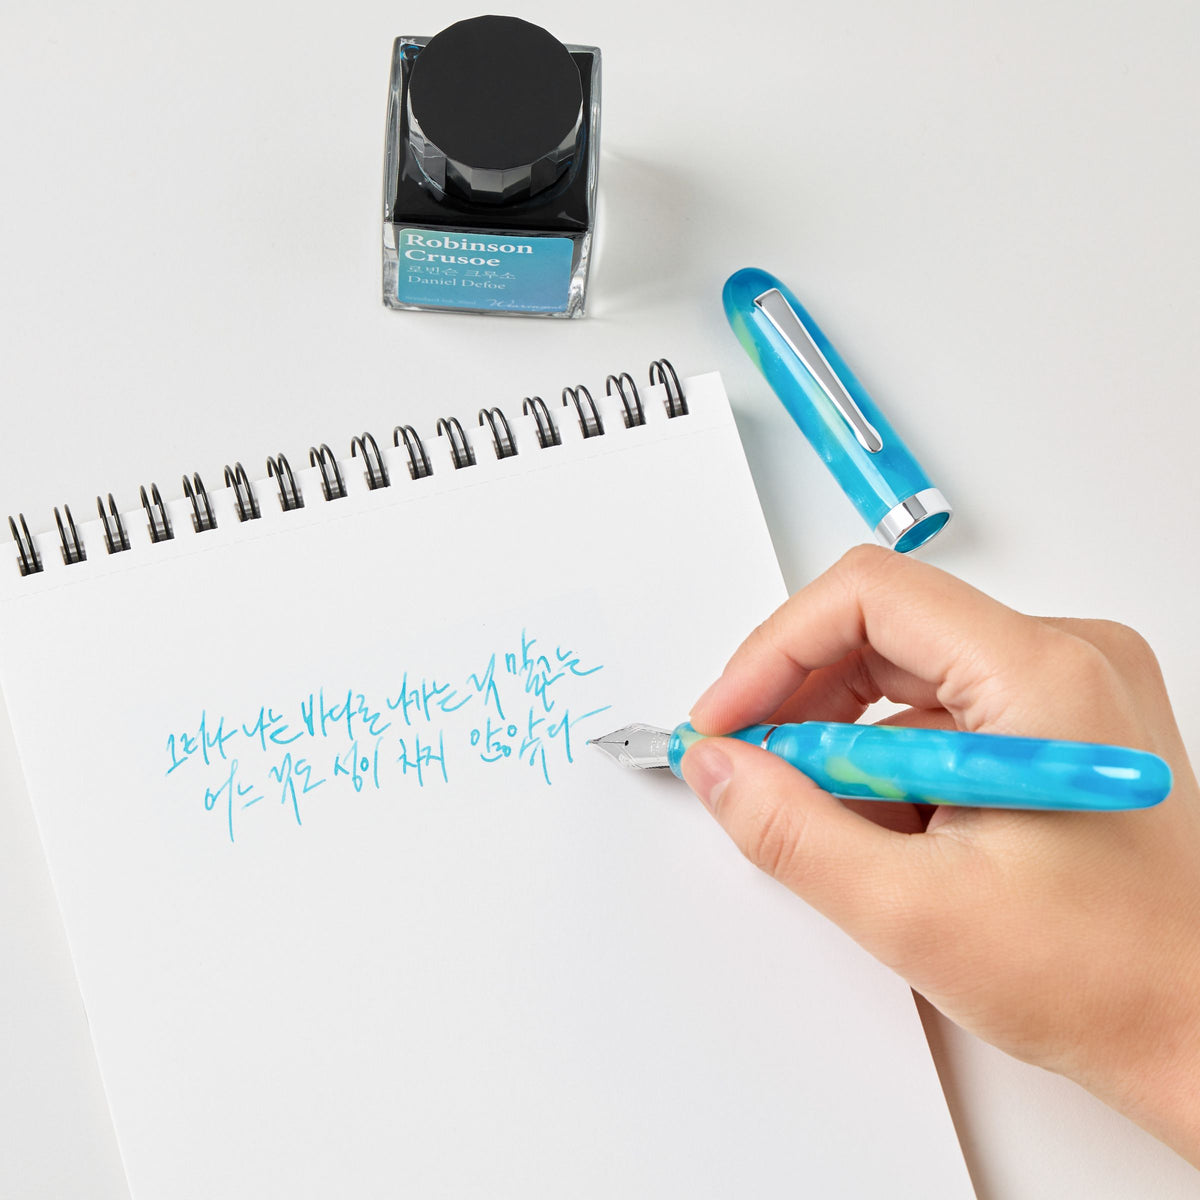 Robinson
Crusoe
로빈슨 크루소
Daniel Defoe
Standard Ink 30ml
Wearingeul
그러나 나는 바다로 나가는 것 말고는
어느 것도 성이 차지 않았다